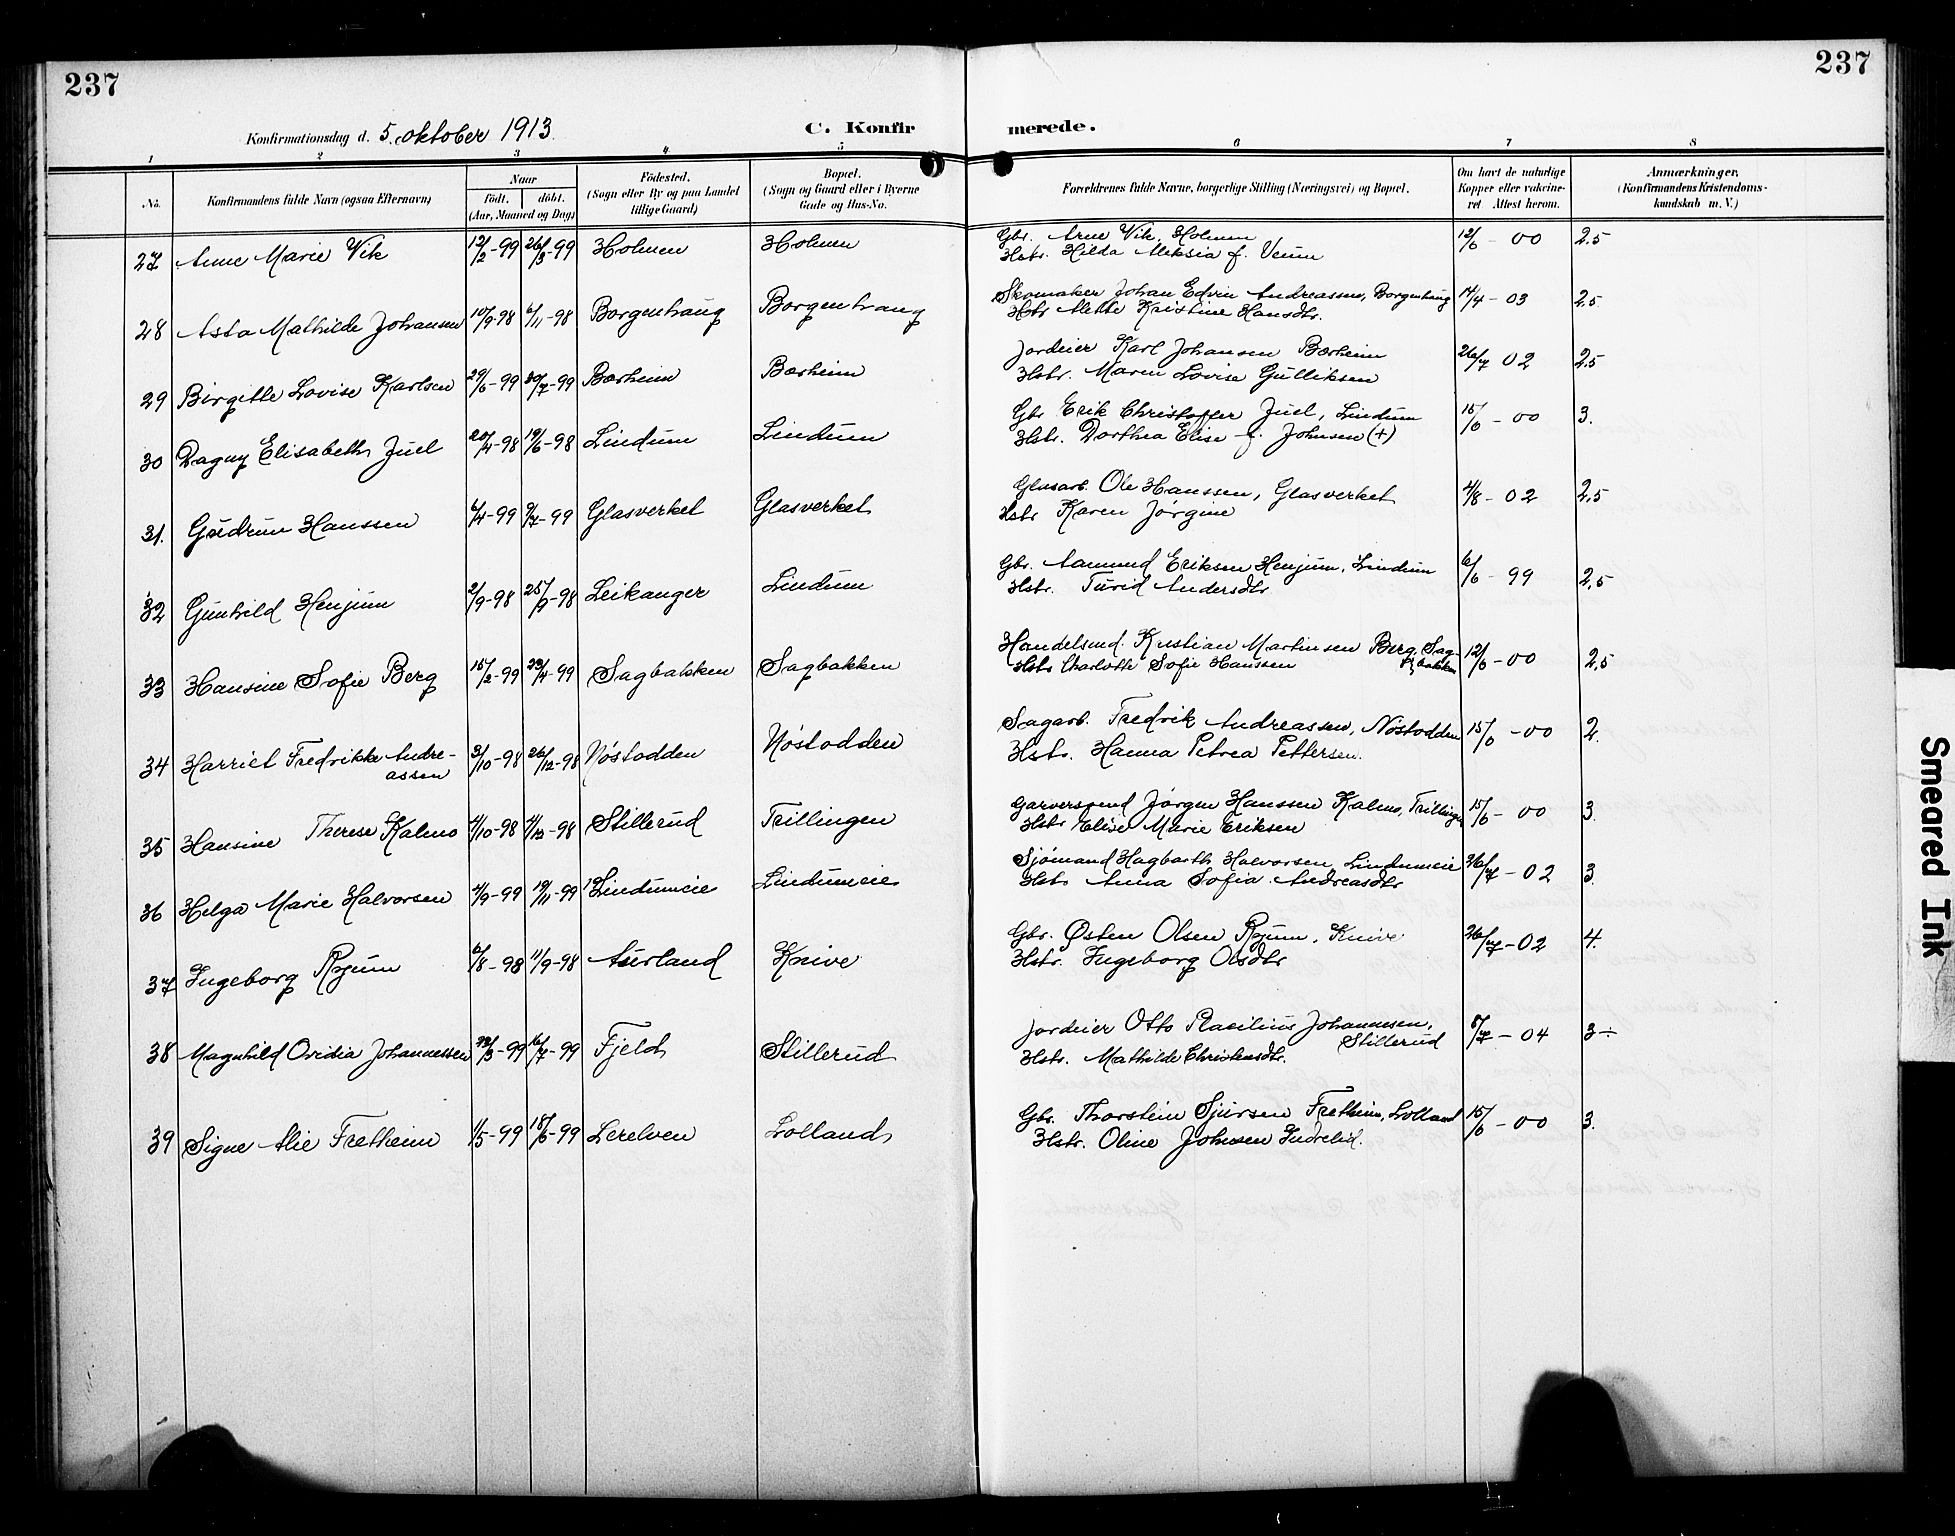 237
237
Konfirmationsdag d. 5. oktober 1913.
C. Konfir
merede.
1 2 3 4 5 6 7 8
No.
Konfirmandens fulde Navn (ogsaa Efternavn)
Naar
födt. döbt.
(Aar, Maaned og Dag)
Födested.
(Sogn eller By og paa Landet
tillige Gaard)
Bopæl.
(Sogn og Gaard eller i Byerne
Gade og Hus-No.
Forældrenes fulde Navne, borgerlige Stilling (Næringsvei) og Bopæl.
Om havt de naturlige
Kopper eller vakcine-
ret Attest herom.
Anmærkninger.
(Konfirmandens Kristendoms-
kundskab m. V.)
27 Anne Marie Vik 12/2-99 26/3-99 Holmen Holmen Gbr. Arne Vik, Holmen 12/6 - 00 2.5
Hstr. Hilda Aleksia f. Veum
28 Asta Mathilde Johansen 10/9-98 6/11-98 Borgenhaug Borgenhaug Skomaker Johan Edvin Andreassen, Borgenhaug 14/4 - 03 2.5
Hstr Alette Kristine Hansdtr.
29 Birgitte Lovise Karlsen 29/6-99 30/7-99 Bærheim Bærheim Jordeier Karl Johansen Bærheim 26/7 02 2.5
Hstr. Maren Lovise Gulliksen
30 Dagny Elisabeth Juel 20/4-98 19/6-98 Lindum Lindum Gbr Erik Christoffer Juel, Lindum 15/6 - 00 3.
Hstr. Dorthea Elise f. Johnsen (+)
31. Gudrun Hanssen 6/4-99 9/7-99 Glasverket Glasverket Glasarb. Ole Hanssen, Glasverket 4/8 - 02 2.5
Hstr Karen Jørgine
32 Gunhild Henjum 2/9-98 25/9-98 Leikanger Lindum Gbr. Aamund Eriksen Henjum, Lindum 6/6 - 99 2.5
Hstr. Turid Andersdtr
33 Hansine Sofie Berg 15/2-99 23/4-99 Sagbakken Sagbakken Handelsmd. Kristian Martinsen Berg, Sag- 12/6 - 00 2.5
Hstr Charlotte Sofie Hanssen bakken
34 Harriet Fredrikke Andre- 3/10-98 26/12-98 Nöstodden Nöstodden Sagarb. Fredrik Andreassen, Nöstodden 15/6 - 00 2.
assen Hstr. Hanna Petrea Pettersen.
35 Hansine Therese Kalmo 4/10-98 4/12-98 Stillerud Trillingen Garversvend Jörgen Hanssen Kalmo, Trillingen 15/6 - 00 3.
Hstr Elise Marie Eriksen
36 Helga Marie Halvorsen 4/9-99 19/11-99 Lindumeie Lindumeie Sjömand Hagbarth Halvorsen Lindumeie 26/7 - 02 3.
Hstr Anna Sofia Andreasdtr
37 Ingeborg Ryum 6/8-98 11/9-98 Aurland Knive Gbr. Østen Olsen Ryum, Knive 26/7-02 4.
Hstr. Ingeborg Olsdtr
38 Magnhild Ovidia Johannessen 22/3-99 16/7-99 Fjeldt Stillerud Jordeier Otto Basilius Johannesen, 5/7 - 04 3÷
Stillerud
Hstr. Mathilde Christensdtr.
39 Signe Alie Fretheim 1/5-99 18/6-99 Lerelven Lolland Gbr. Thorstein Sjursen Fretheim, Lolland 15/6 - 00 3.
Hstr. Oline Johnsen Indrelid.
Smeared Ink